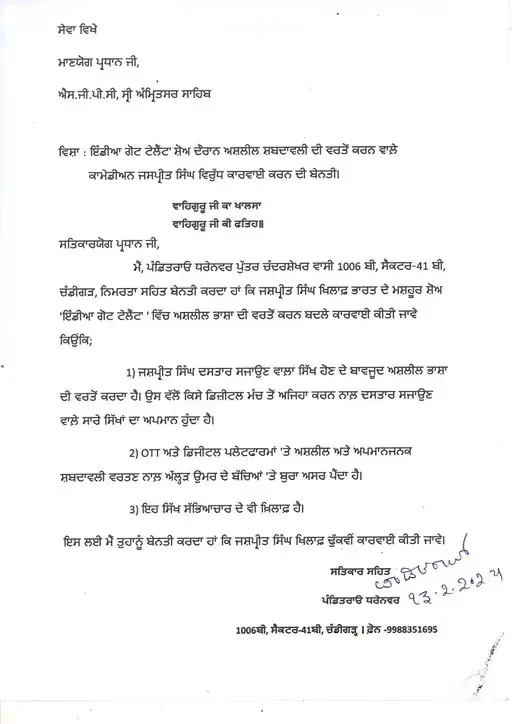 ਸੇਵਾ ਵਿਖੇ
ਮਾਣਯੋਗ ਪ੍ਰਧਾਨ ਜੀ,
ਐਸ.ਜੀ.ਪੀ.ਸੀ, ਸ੍ਰੀ ਅੰਮ੍ਰਿਤਸਰ ਸਾਹਿਬ
ਵਿਸ਼ਾ : ਇੰਡੀਆ ਗੋਟ ਟੇਲੈਂਟ' ਸ਼ੋਅ ਦੌਰਾਨ ਅਸ਼ਲੀਲ ਸ਼ਬਦਾਵਲੀ ਦੀ ਵਰਤੋਂ ਕਰਨ ਵਾਲੇ
ਕਾਮੇਡੀਅਨ ਜਸਪ੍ਰੀਤ ਸਿੰਘ ਵਿਰੁੱਧ ਕਾਰਵਾਈ ਕਰਨ ਦੀ ਬੇਨਤੀ।
ਵਾਹਿਗੁਰੂ ਜੀ ਕਾ ਖਾਲਸਾ
ਵਾਹਿਗੁਰੂ ਜੀ ਕੀ ਫਤਿਹ॥
ਸਤਿਕਾਰਯੋਗ ਪ੍ਰਧਾਨ ਜੀ,
ਮੈਂ, ਪੰਡਿਤਰਾਓ ਧਰੇਨਵਰ ਪੁੱਤਰ ਚੰਦਰਸ਼ੇਖਰ ਵਾਸੀ 1006 ਬੀ, ਸੈਕਟਰ-41 ਬੀ,
ਚੰਡੀਗੜ, ਨਿਮਰਤਾ ਸਹਿਤ ਬੇਨਤੀ ਕਰਦਾ ਹਾਂ ਕਿ ਜਸ਼ਪ੍ਰੀਤ ਸਿੰਘ ਖਿਲਾਫ਼ ਭਾਰਤ ਦੇ ਮਸ਼ਹੂਰ ਸ਼ੋਅ
'ਇੰਡੀਆ ਗੋਟ ਟੇਲੈਂਟ' ' ਵਿੱਚ ਅਸ਼ਲੀਲ ਭਾਸ਼ਾ ਦੀ ਵਰਤੋਂ ਕਰਨ ਬਦਲੇ ਕਾਰਵਾਈ ਕੀਤੀ ਜਾਵੇ
ਕਿਉਂਕਿ;
1) ਜਸ਼ਪ੍ਰੀਤ ਸਿੰਘ ਦਸਤਾਰ ਸਜਾਉਣ ਵਾਲਾ ਸਿੱਖ ਹੋਣ ਦੇ ਬਾਵਜੂਦ ਅਸ਼ਲੀਲ ਭਾਸ਼ਾ
ਦੀ ਵਰਤੋਂ ਕਰਦਾ ਹੈ। ਉਸ ਵੱਲੋਂ ਕਿਸੇ ਡਿਜ਼ੀਟਲ ਮੰਚ ਤੋਂ ਅਜਿਹਾ ਕਰਨ ਨਾਲ਼ ਦਸਤਾਰ ਸਜਾਉਣ
ਵਾਲ਼ੇ ਸਾਰੇ ਸਿੱਖਾਂ ਦਾ ਅਪਮਾਨ ਹੁੰਦਾ ਹੈ।
2) OTT ਅਤੇ ਡਿਜੀਟਲ ਪਲੇਟਫਾਰਮਾਂ 'ਤੇ ਅਸ਼ਲੀਲ ਅਤੇ ਅਪਮਾਨਜਨਕ
ਸ਼ਬਦਾਵਲੀ ਵਰਤਣ ਨਾਲ਼ ਅੱਲ੍ਹੜ ਉਮਰ ਦੇ ਬੱਚਿਆਂ 'ਤੇ ਬੁਰਾ ਅਸਰ ਪੈਂਦਾ ਹੈ।
3) ਇਹ ਸਿੱਖ ਸੱਭਿਆਚਾਰ ਦੇ ਵੀ ਖ਼ਿਲਾਫ਼ ਹੈ।
ਇਸ ਲਈ ਮੈਂ ਤੁਹਾਨੂੰ ਬੇਨਤੀ ਕਰਦਾ ਹਾਂ ਕਿ ਜਸ਼ਪ੍ਰੀਤ ਸਿੰਘ ਖਿਲਾਫ਼ ਢੁੱਕਵੀਂ ਕਾਰਵਾਈ ਕੀਤੀ ਜਾਵੇ।
ਸਤਿਕਾਰ ਸਹਿਤ
ਪੰਡਿਤਰਾਓ ਧਰੇਨਵਰ ੧੩.2.੨੦੨੫
1006ਬੀ, ਸੈਕਟਰ-41ਬੀ, ਚੰਡੀਗੜ੍ਹ । ਫ਼ੋਨ -9988351695